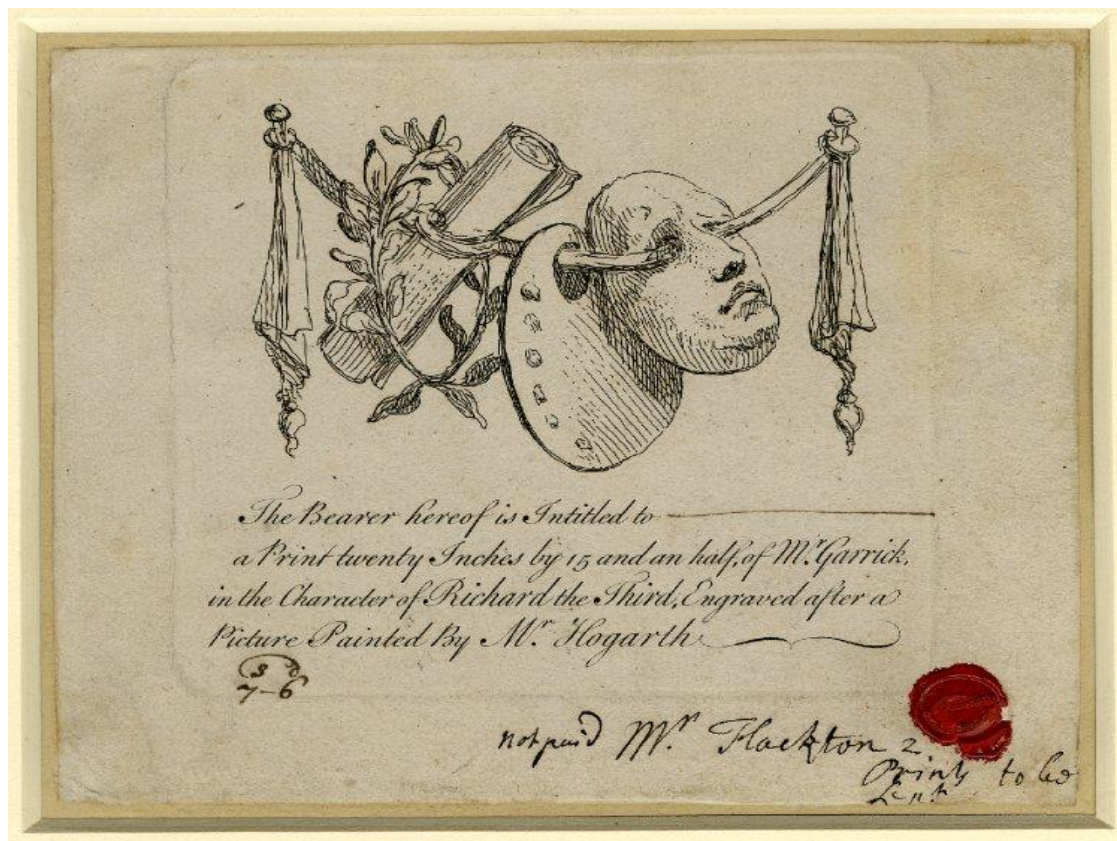 The Bearer hereof is Intitled to
a Print twenty Inches by 15 and an half, of Mr. Garrick,
in the Character of Richard the Third, Engraved after a
Picture Painted By Mr. Hogarth
s d
7-6
not paid Mr. Flackton 2
Prints to be
Sent